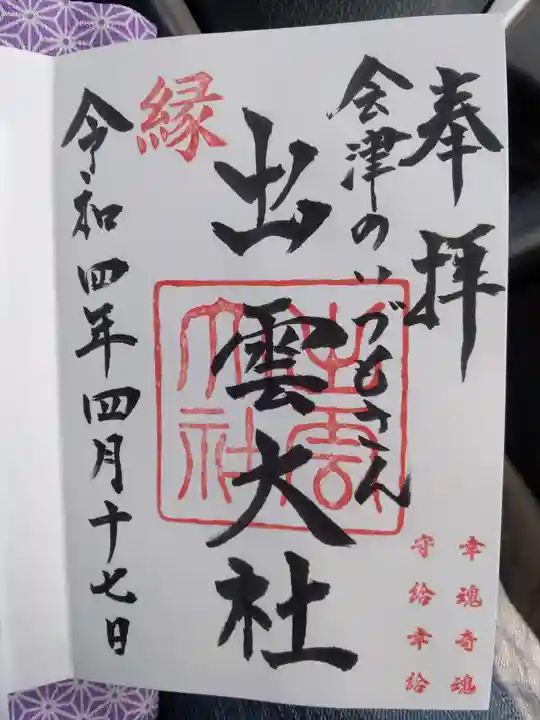 奉拝
会津のいづもさん
出雲大社
縁
令和四年四月十七日
出雲
大社
幸魂奇魂
守給幸給